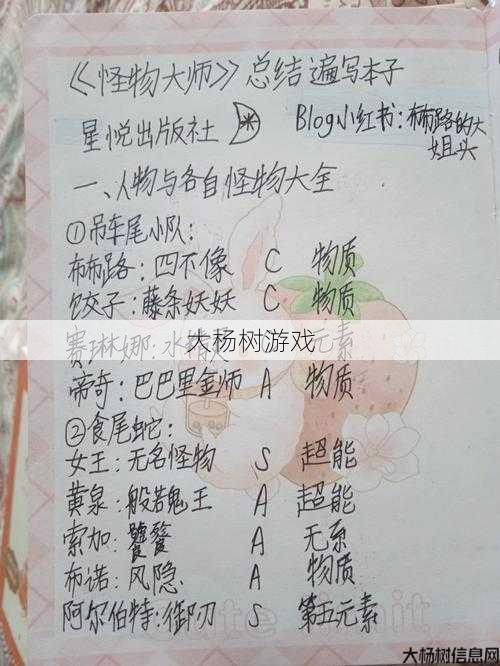 《怪物大师》总结遍写本子
星悦出版社
Blog小红书:布布路的大
姐头
一、人物与各自怪物大全
①吊车尾小队:
布布路:四不像 C 物质
饺子:藤条妖妖 C 物质
赛琳娜:水 元素
大杨树游戏
帝奇:巴巴里金师 A 物质
②食尾蛇:
女王:无名怪物 S 超能
黄泉:般若鬼王 A 超能
索加:饕餮 A 无系
布诺:风隐 A 物质
阿尔伯特:御刃 S 第五元素
大杨树信息网